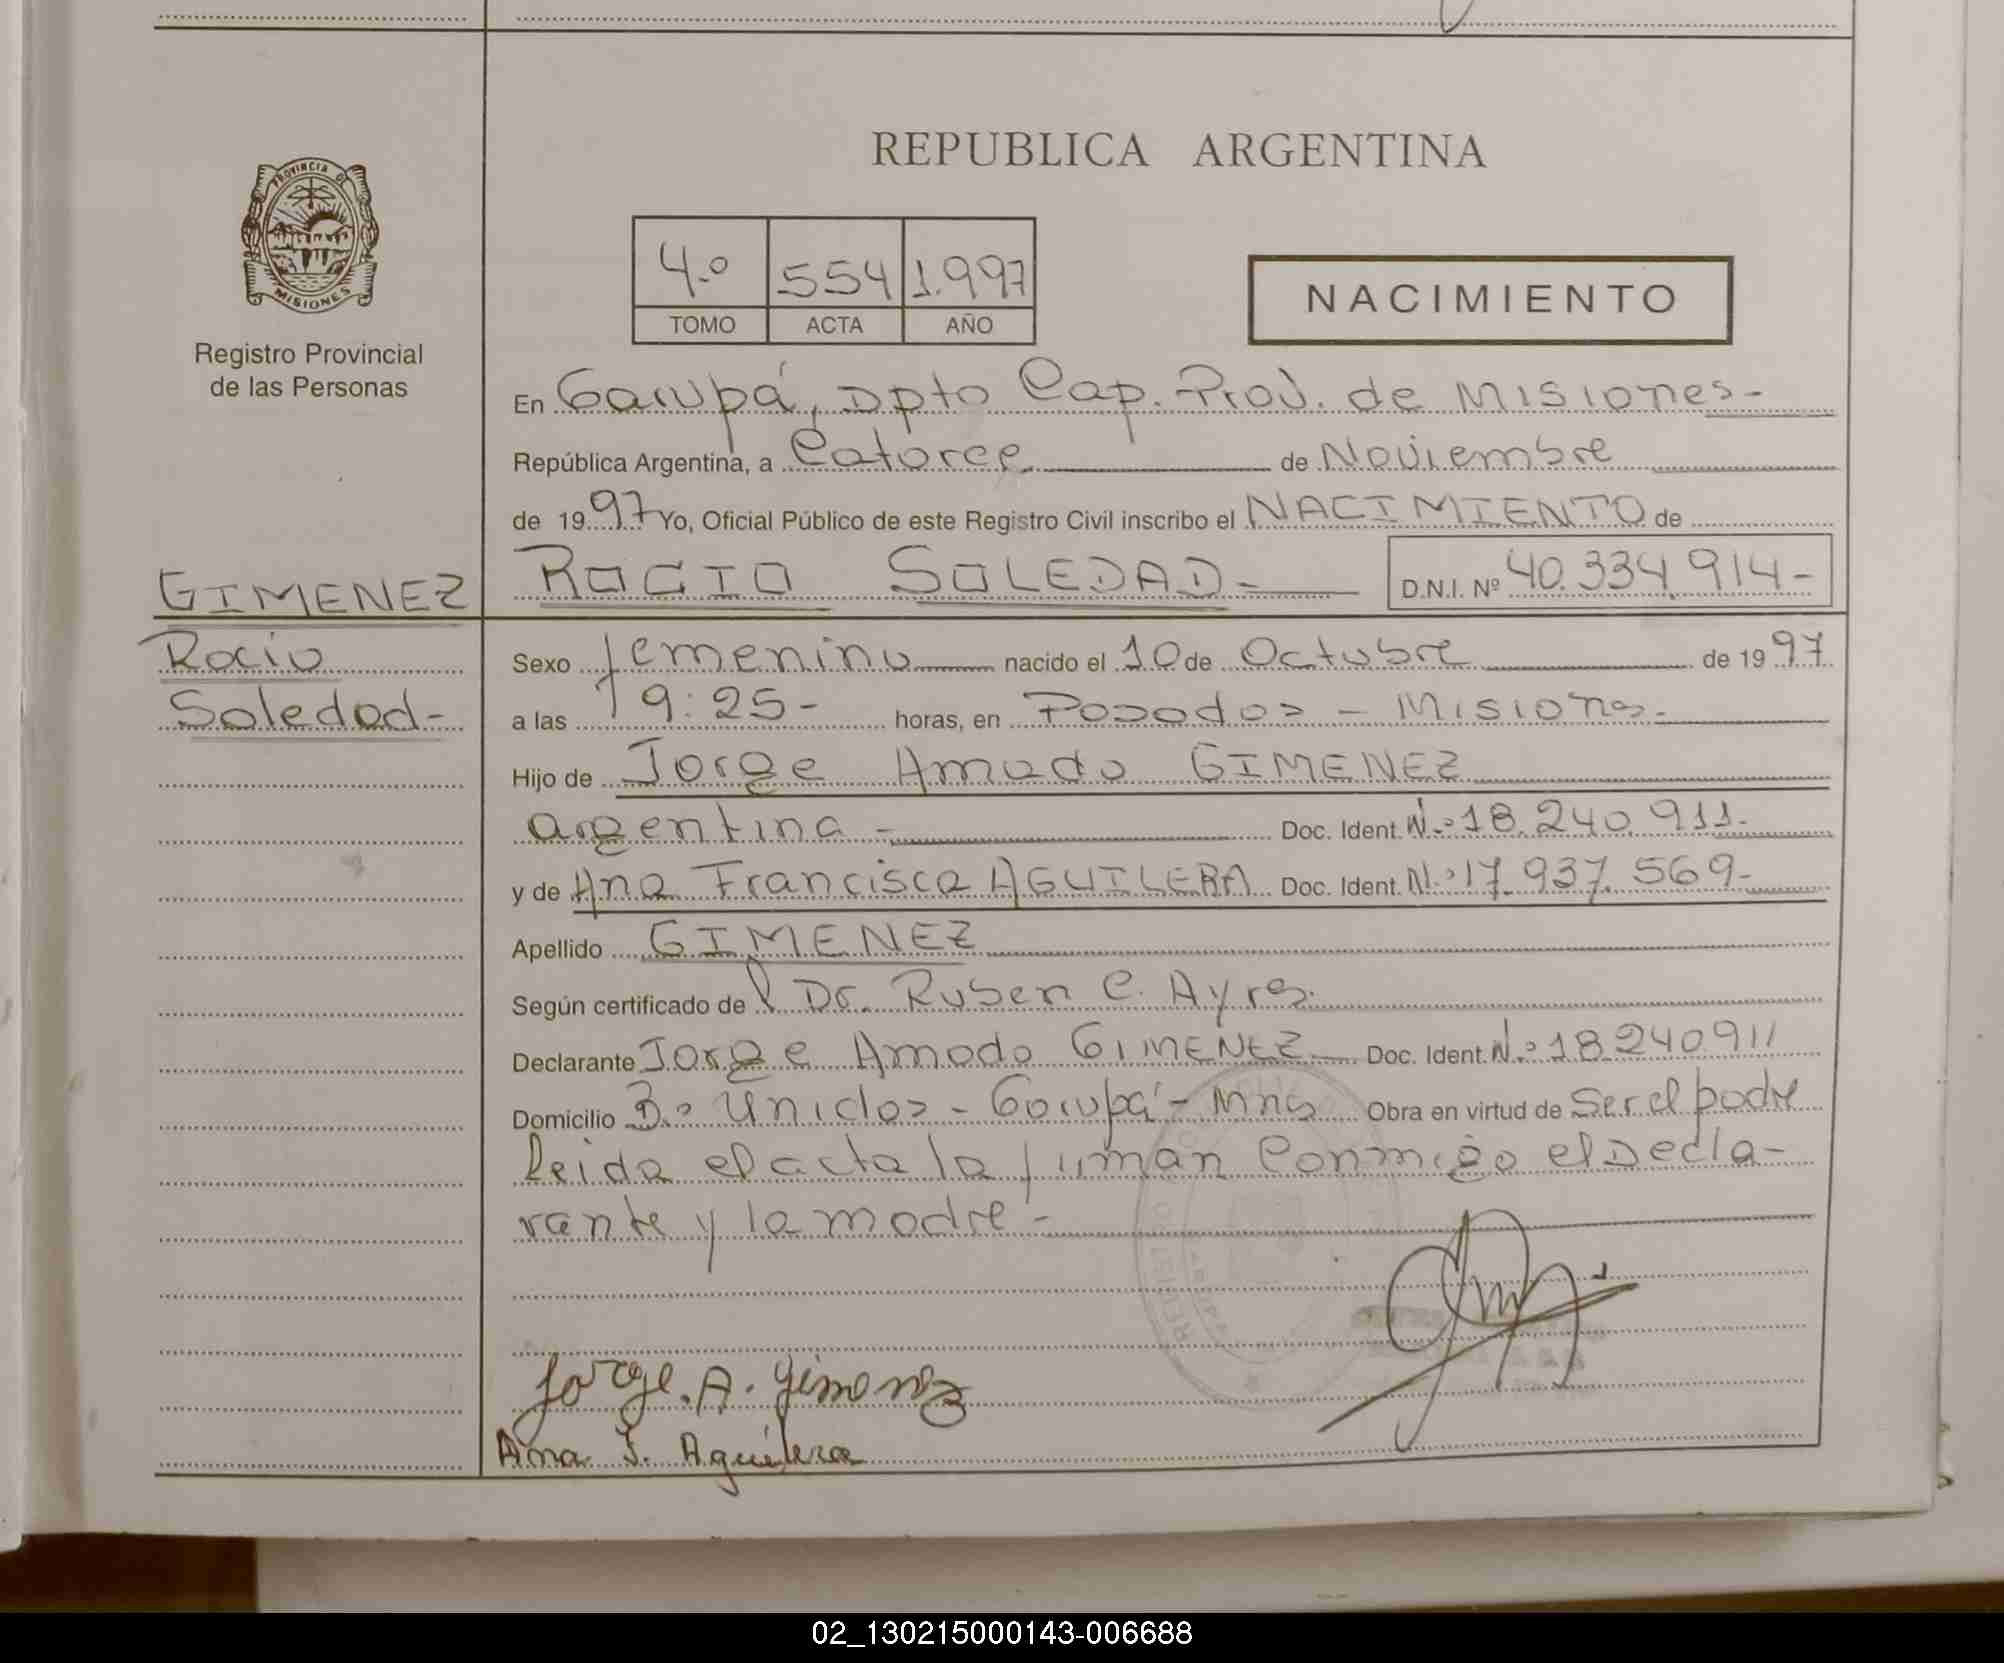 REPUBLICA ARGENTINA
PROVINCIA DE
MISIONES
Registro Provincial
de las Personas
4.º 554 1.997
TOMO ACTA AÑO
NACIMIENTO
En Garupá, Dpto Cap. Prov. de Misiones-
República Argentina, a Catorce de Noviembre
de 1997 Yo, Oficial Público de este Registro Civil inscribo el NACIMIENTO de
GIMENEZ
Rocio
Soledad-
ROCIO SOLEDAD- D.N.I. Nº 40.334.914-
Sexo femenino nacido el 10 de Octubre de 1997
a las 19:25- horas, en Posadas - Misiones-
Hijo de Jorge Amado GIMENEZ
argentina - Doc. Ident. N.º 18.240.911-
y de Ana Francisca AGUILERA Doc. Ident. N.º 17.937.569-
Apellido GIMENEZ
Según certificado de l Dr. Ruben C. Ayres.
Declarante Jorge Amado GIMENEZ Doc. Ident. N.º 18240911
Domicilio B.º Unidos - Garupá - Mnes Obra en virtud de Ser el padre
leida el acta la firman Conmigo el Decla-
rante y la madre-
Jorge. A. Gimenez
Ana. F. Aguilera
02_130215000143-006688